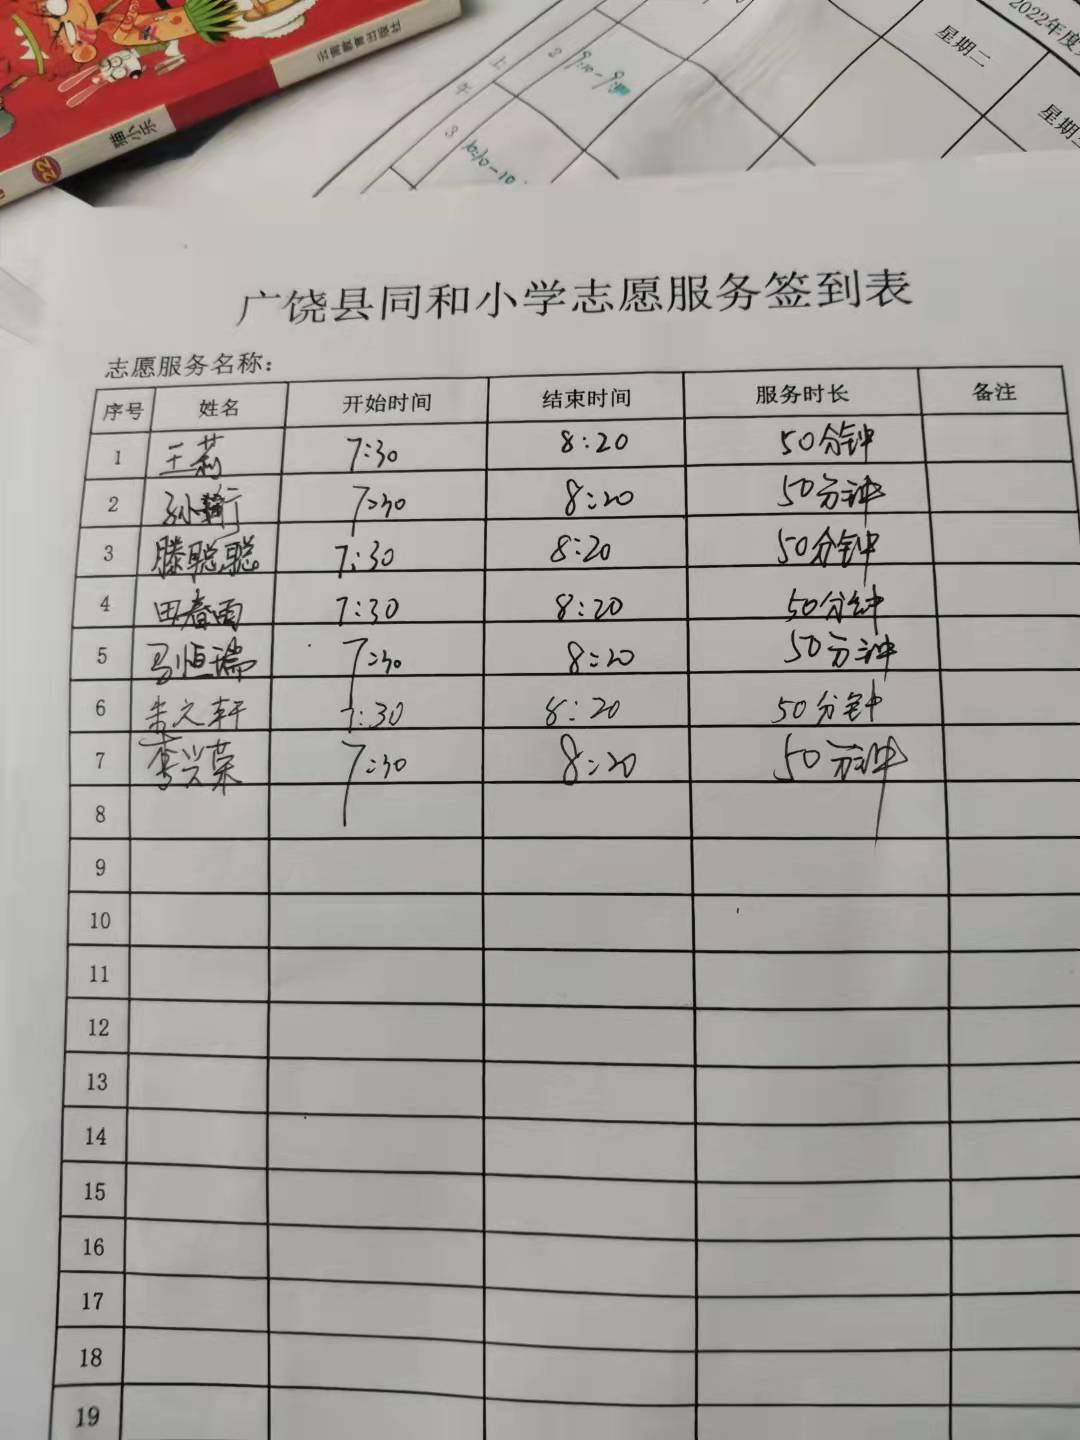 云南教育出版社
猫小乐
22
2022年度
星期二
星期
上
午
8
9:10-9:
8
10:10-10
广饶县同和小学志愿服务签到表
志愿服务名称：
序号 姓名 开始时间 结束时间 服务时长 备注
1 王莉 7:30 8:20 50分钟
2 孙 7:30 8:20 50分钟
3 滕聪聪 7:30 8:20 50分钟
4 田春雨 7:30 8:20 50分钟
5 马恒瑞 7:30 8:20 50分钟
6 文轩 7:30 8:20 50分钟
7 李兴荣 7:30 8:20 50分钟
8
9
10
11
12
13
14
15
16
17
18
19